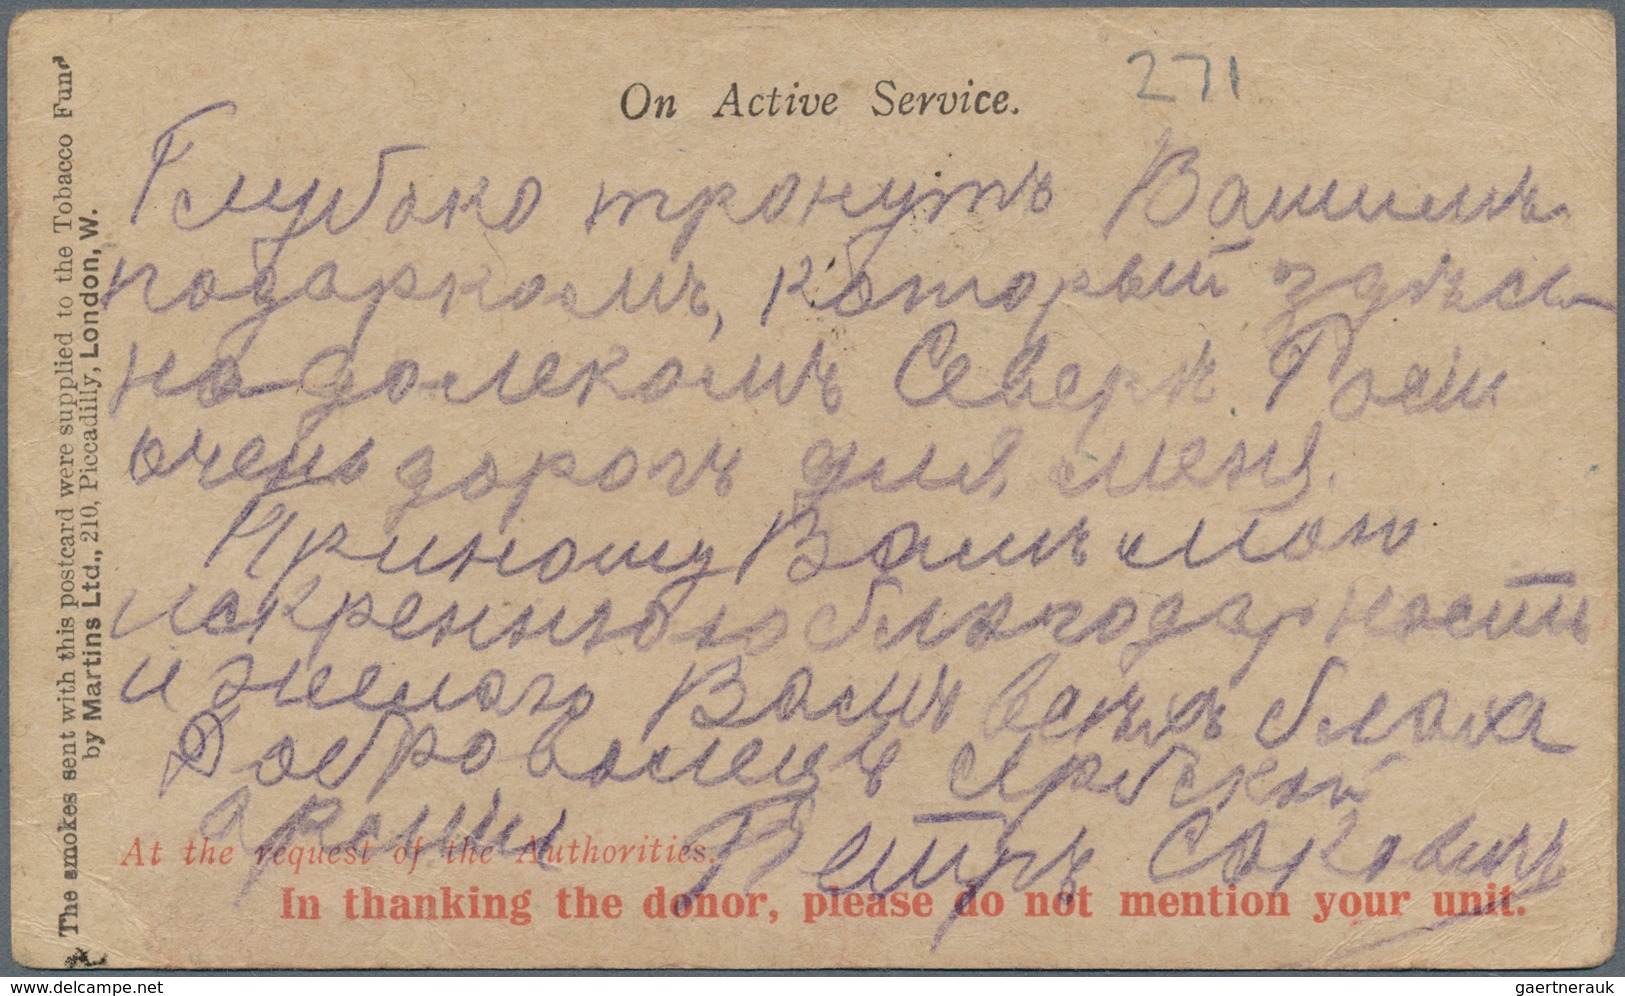 On Active Service.
271
Глубоко тронутъ Вашимъ
подаркомъ, который здѣсь
на далекомъ Северѣ Росіи
очень дорогъ для меня.
Приношу Вамъ мою
искреннюю благодарность
и желаю Вамъ всѣхъ блага
Доброволецъ Сербской
армии Петръ Сакович
At the request of the Authorities.
In thanking the donor, please do not mention your unit.
The smokes sent with this postcard were supplied to the Tobacco Fund
by Martins Ltd., 210, Piccadilly, London, W.
www.delcampe.net
gaertnerauk